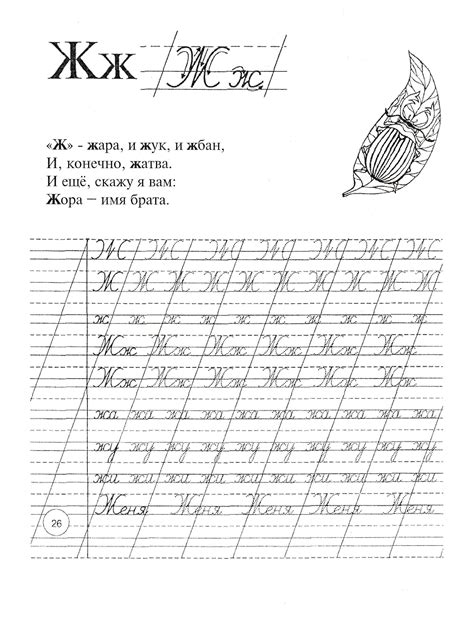 Жж Ж ж
«Ж» - жара, и жук, и жбан,
И, конечно, жатва.
И ещё, скажу я вам:
Жора – имя брата.
Ж Ж Ж Ж Ж Ж Ж Ж Ж Ж
ж ж ж ж ж ж ж ж ж ж
Жж Жж Жж Жж Жж Жж
Жж Жж Жж Жж Жж Жж
жа жа жа жа жа жа жа жа жа жа
жу жу жу жу жу жу жу жу жу жу
жи жи жи жи жи жи жи жи жи жи
Женя Женя Женя Женя Женя
26